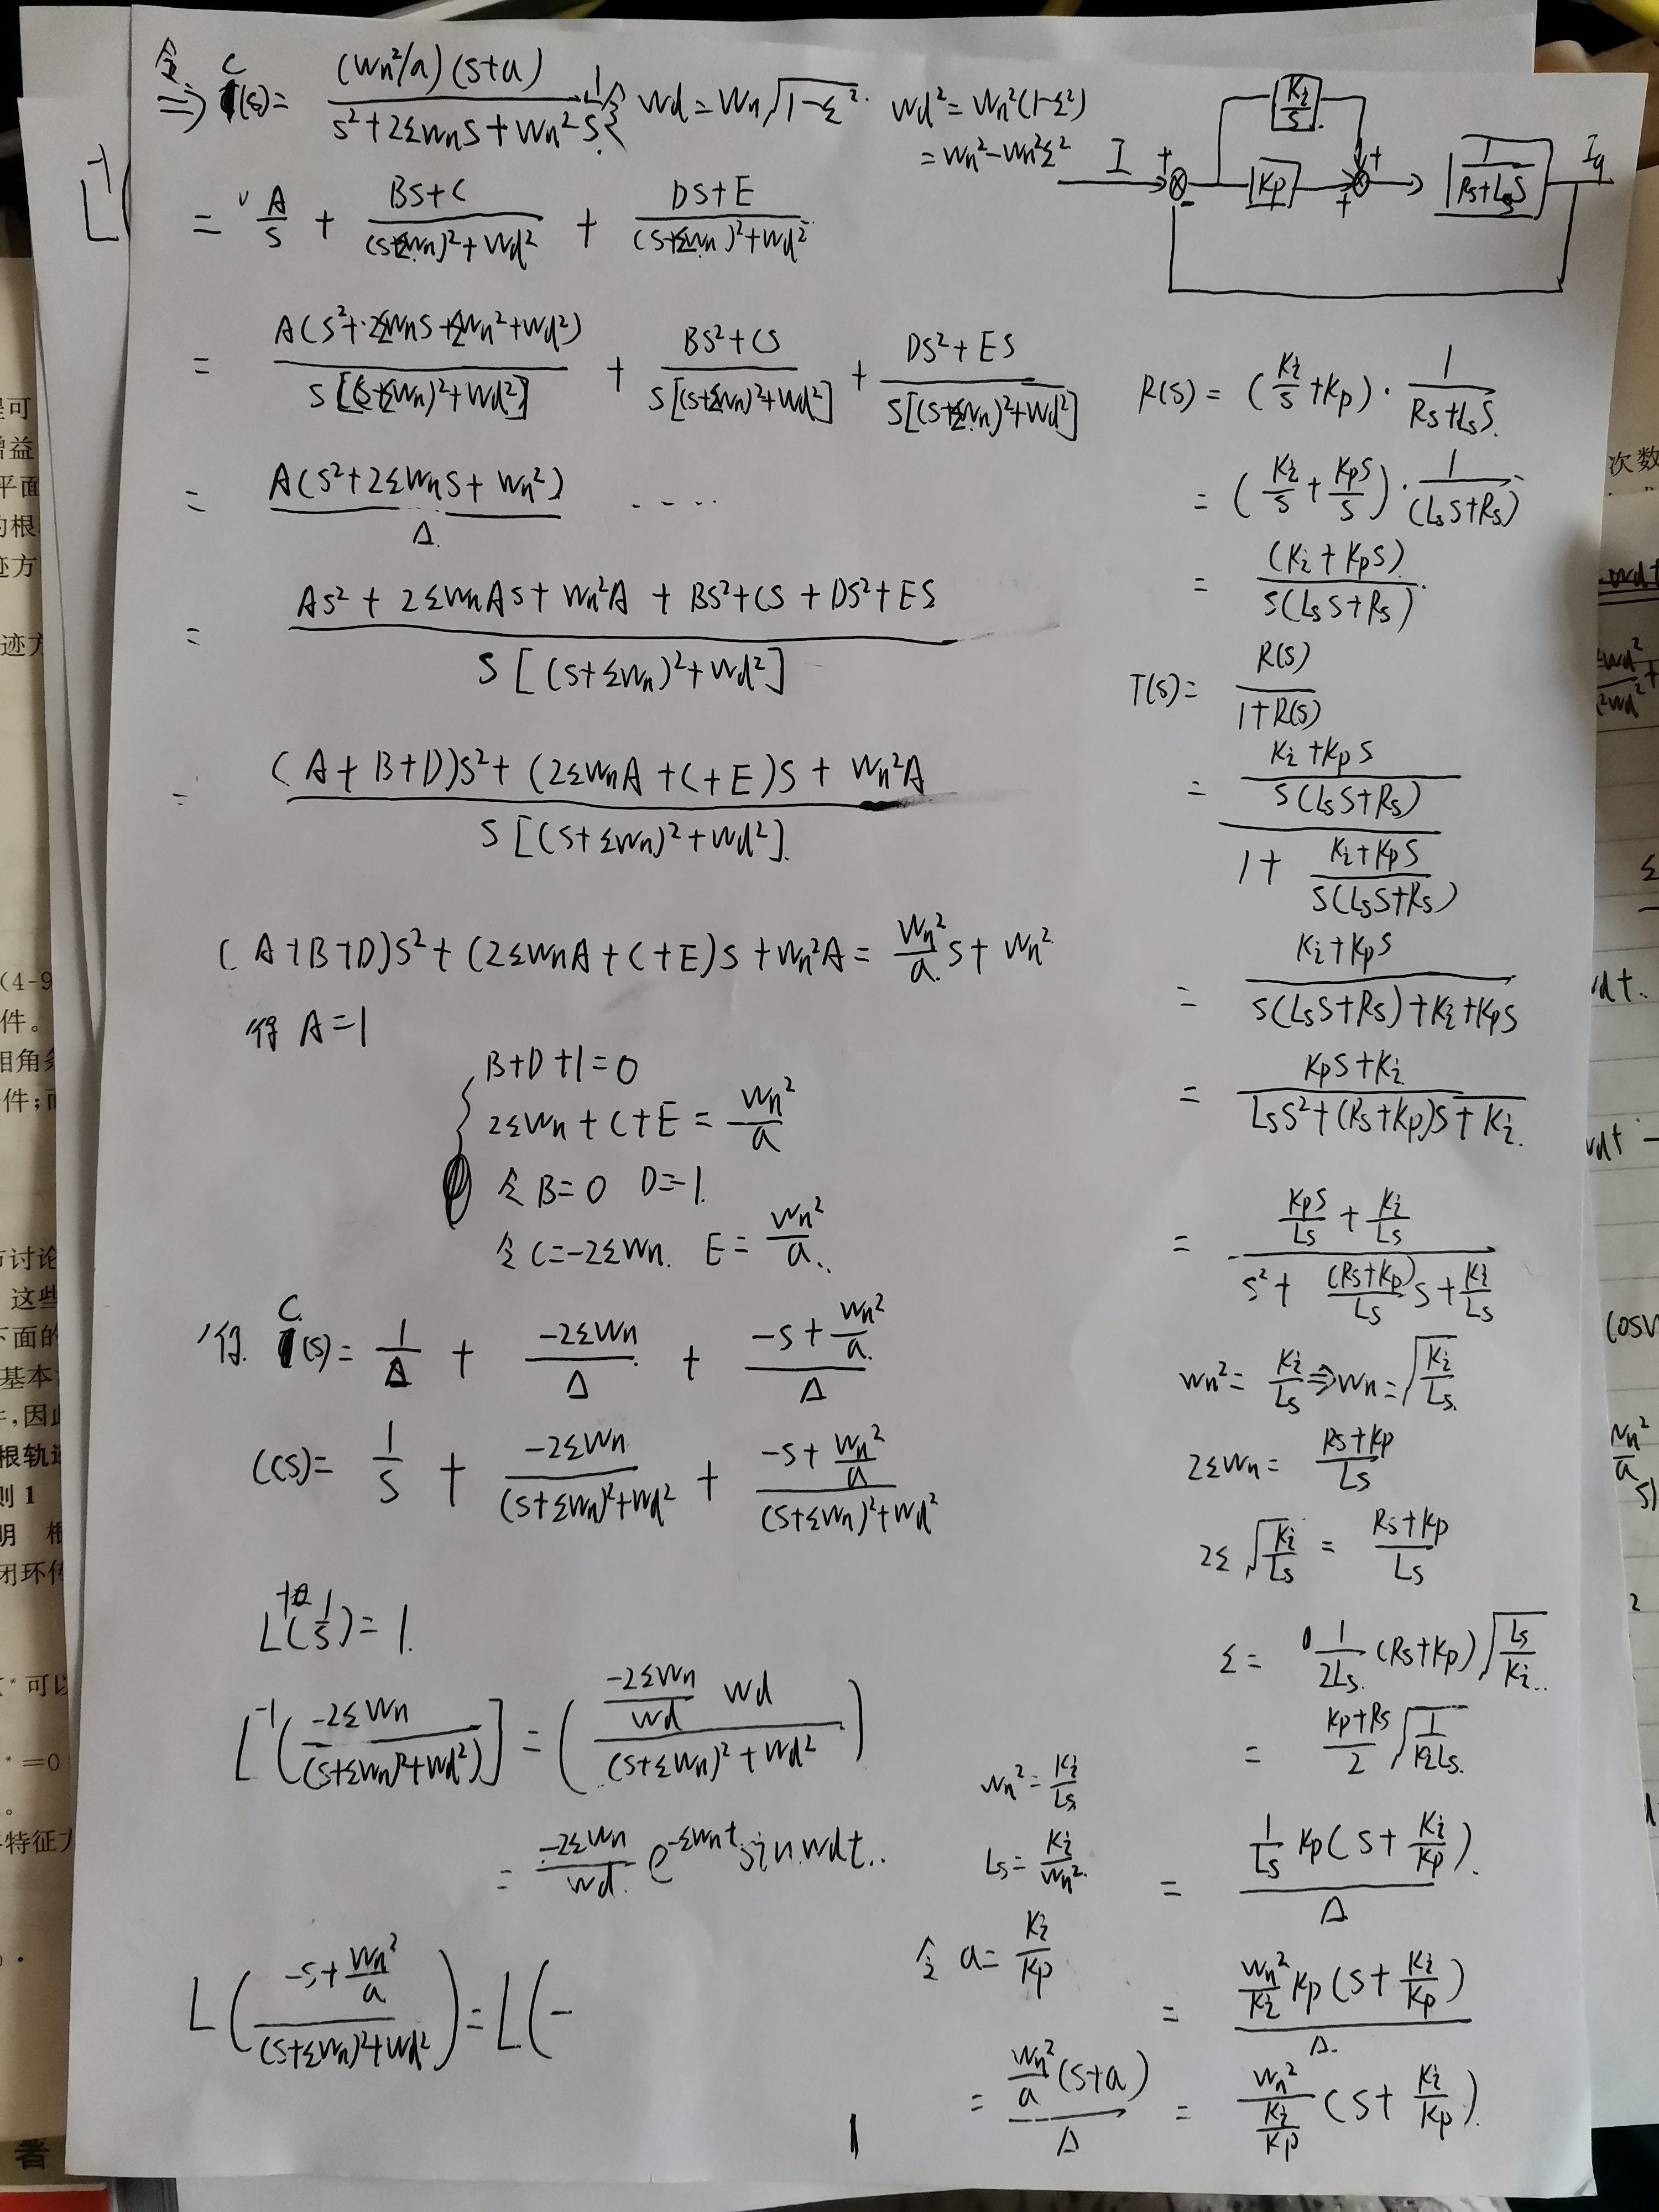 令
⇒ C(s) = (Wn²/a)(s+a) / (s²+2ξWnS+Wn²) · 1/S 令 Wd = Wn√(1-ξ²) Wd² = Wn²(1-ξ²)
= Wn²-Wn²ξ²
= A/S + (BS+C)/((S+ξWn)²+Wd²) + (DS+E)/((S+ξWn)²+Wd²)
= A(S²+2ξWnS+ξWn²+Wd²) / S[(S+ξWn)²+Wd²] + (BS²+CS) / S[(S+ξWn)²+Wd²] + (DS²+ES) / S[(S+ξWn)²+Wd²]
= A(S²+2ξWnS+Wn²) / Δ ....
= (AS²+2ξWnAS+Wn²A+BS²+CS+DS²+ES) / S[(S+ξWn)²+Wd²]
= ((A+B+D)S²+(2ξWnA+C+E)S+Wn²A) / S[(S+ξWn)²+Wd²]
(A+B+D)S²+(2ξWnA+C+E)S+Wn²A = Wn²/a S+Wn²
得 A=1
B+D+1=0
2ξWn+C+E = Wn²/a
令 B=0 D=-1.
令 C=-2ξWn. E = Wn²/a
得 C(s) = 1/Δ + -2ξWn/Δ + (-S+Wn²/a)/Δ
C(S)= 1/S + -2ξWn/((S+ξWn)²+Wd²) + (-S+Wn²/a)/((S+ξWn)²+Wd²)
L(1/S) = 1.
L⁻¹(-2ξWn/((S+ξWn)²+Wd²)] = (-2ξWn/Wd Wd / ((S+ξWn)²+Wd²))
= -2ξWn/Wd e^(-ξWnt) sin Wdt..
L((-S+Wn²/a)/((S+ξWn)²+Wd²)) = L(-
I + - Ki/S Kp + + 1/(Rs+LsS) Iq
R(s) = (Ki/S+Kp)·1/(Rs+LsS)
= (Ki/S+KpS/S)·1/(LsS+Rs)
= (Ki+KpS)/S(LsS+Rs)
T(s) = R(s)/(1+R(s))
= (Ki+KpS)/S(LsS+Rs) / (1+(Ki+KpS)/S(LsS+Rs))
= (Ki+KpS)/(S(LsS+Rs)+Ki+KpS)
= (KpS+Ki)/(LsS²+(Rs+Kp)S+Ki)
= (KpS/Ls+Ki/Ls)/(S²+(Rs+Kp)/Ls S+Ki/Ls)
Wn² = Ki/Ls ⇒ Wn = √(Ki/Ls)
2ξWn = (Rs+Kp)/Ls
2ξ√(Ki/Ls) = (Rs+Kp)/Ls
ξ = 1/2Ls (Rs+Kp)√(Ls/Ki)
= (Kp+Rs)/2 √(1/KiLs)
Wn² = Ki/Ls
Ls = Ki/Wn² = 1/Ls Kp(S+Ki/Kp) / Δ
令 a = Ki/Kp = Wn²/Ki Kp(S+Ki/Kp) / Δ
= Wn²/a (S+a) / Δ = Wn²/(Ki/Kp) (S+Ki/Kp)
次数
(4-9
件。
相角条
件;而
讨论
这些
下面的
基本
,因此
根轨迹
则1
明 根
闭环传
可以
=0
特征
者